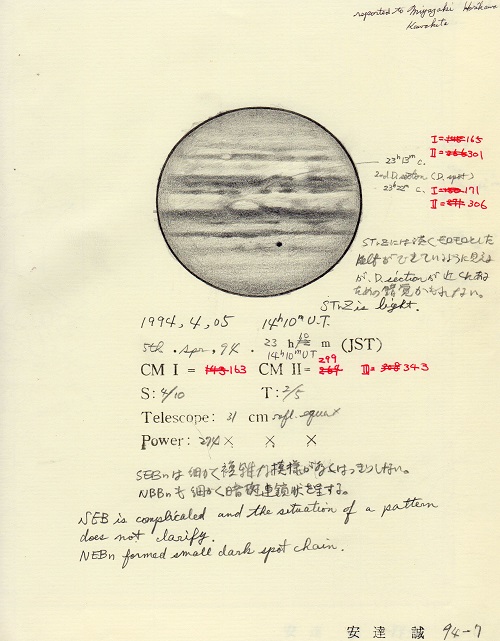 reported to Miyazaki Horikawa
Kuwahite
I = 165
II = 301
23h 13m c.
2nd D. section (D. spot)
23h 22m c.
I = 171
II = 306
STrZには淡くモロモロとした
が、D. sectionが近くにある
ための錯覚かもしれない。
STrZ is light.
1994, 4, 05 14h10m U.T.
5th. Apr, 94. 23 h 10 m (JST)
14h10m UT
CM I = 163 CM II = 299 III = 343
S: 4/10 T: 2/5
Telescope: 31 cm refl. equa
Power: 274 × × ×
SEBnは細かく複雑な模様があるがはっきりしない。
NEBnも細かく暗斑連鎖状を呈する。
SEB is complicated and the situation of a pattern
does not clarify.
NEBn formed small dark spot chain.
安達 誠 94-7